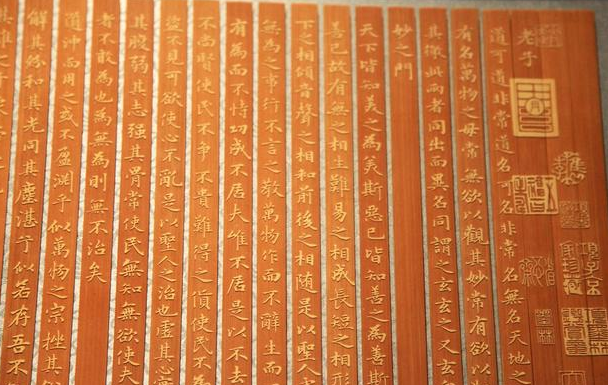 老子
道可道非常道名可名非常名無名天地之
有名萬物之母常無欲以觀其妙常有欲以
其徼此兩者同出而異名同謂之玄玄之又玄
妙之門
天下皆知美之為美斯惡已皆知善之為善斯
善已故有無之相生難易之相成長短之相形
下之相傾音聲之相和前後之相隨是以聖人
無為之事行不言之教萬物作而不辭生而
有為而不恃功成不居夫唯不居是以不去
不尚賢使民不爭不貴難得之貨使民不為
盜不見可欲使心不亂是以聖人之治也虛其心
其腹弱其志強其骨常使民無知無欲使夫
者不敢為也為無為則無不治矣
道沖而用之或不盈淵乎似萬物之宗挫其
解其紛和其光同其塵湛乎似若存吾不